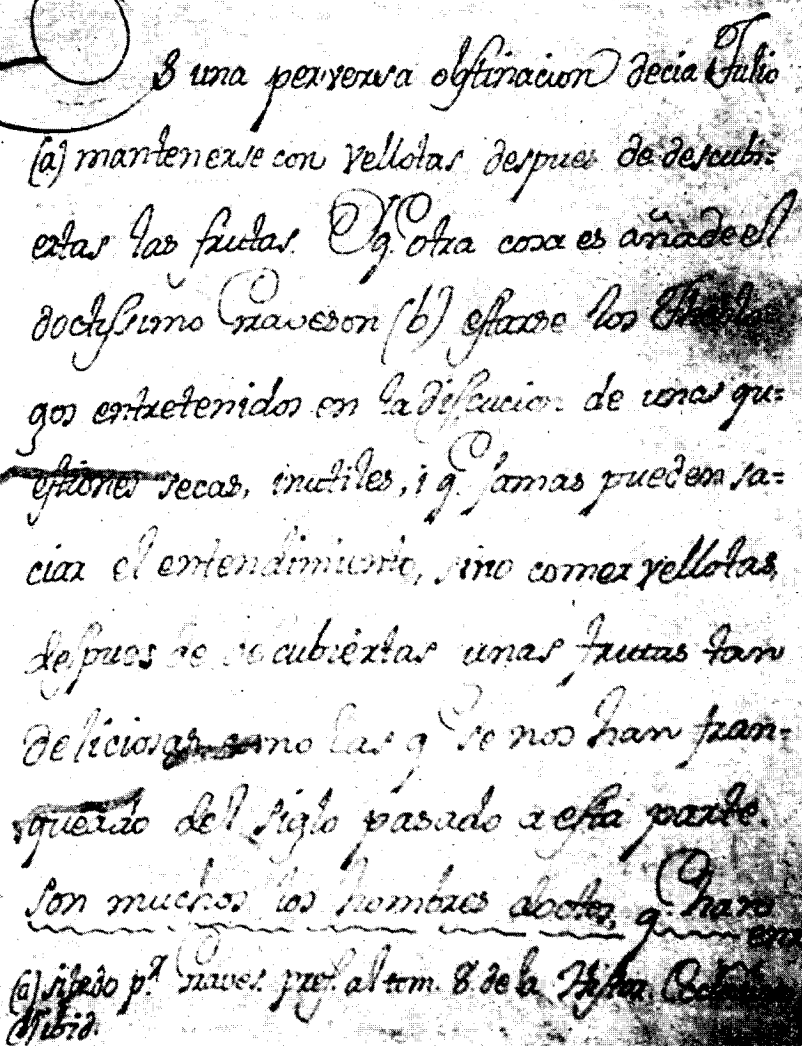 Es una perversa obstinacion decia Julio
(a) mantenerse con vellotas despues de descubi=
ertas las frutas. Y q. otra cosa es añade el
doctissimo Graveson (b) estarse los Theolo
gos entretenidos en la discucion de unas qu=
estiones secas, inutiles, i q. jamas pueden sa=
ciar el entendimiento, sino comer vellotas,
despues de descubiertas unas frutas tan
deliciosas como las q. se nos han fran=
queado del siglo pasado a esta parte.
son muchos los hombres doctos, q. han
(a) sitado p.r Graves. pref. al tom. 8. de la Histor.
Ibid.